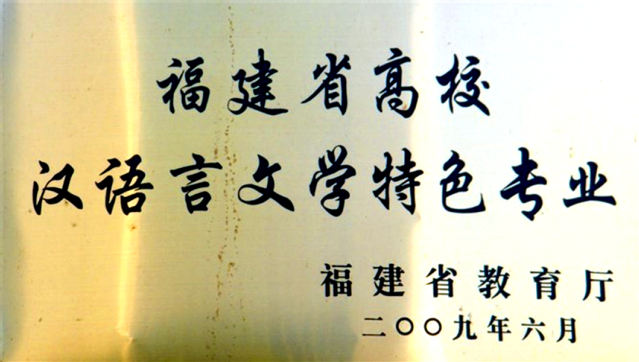 福建省高校
汉语言文学特色专业
福建省教育厅
二〇〇九年六月